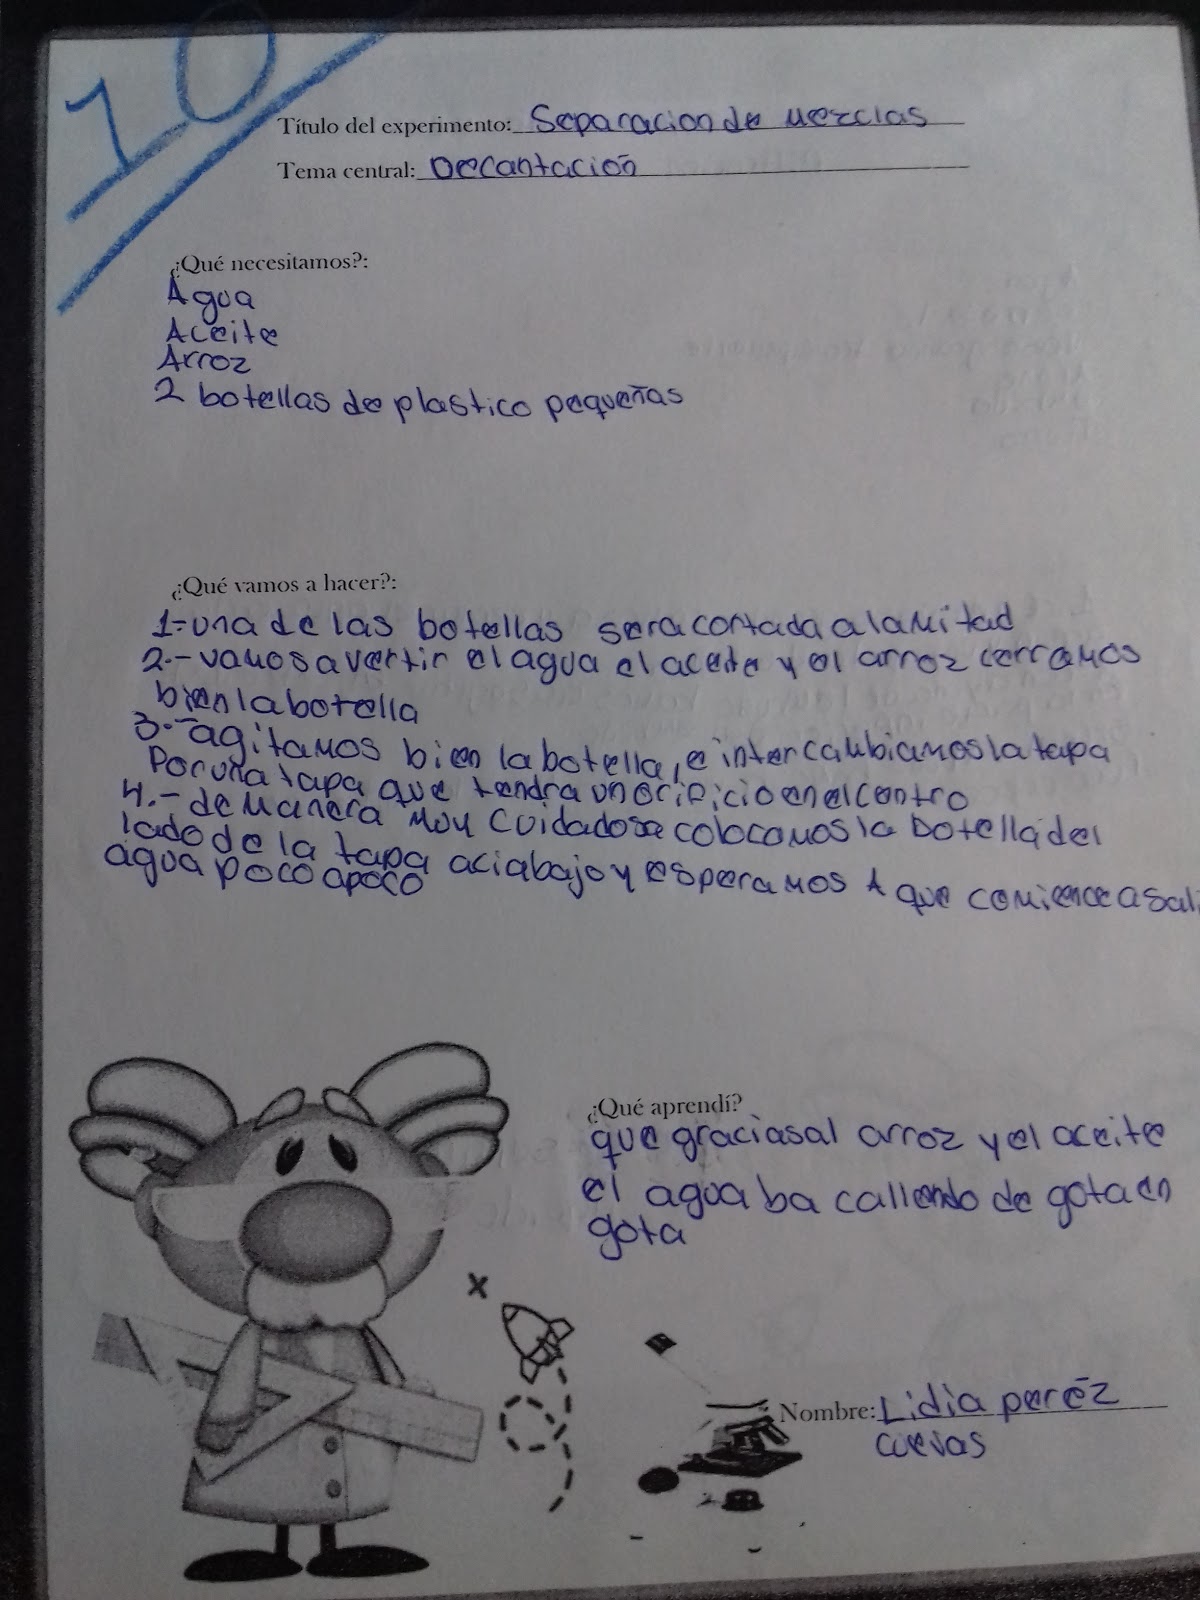 10
Título del experimento: Separacion de Mezclas
Tema central: Decantación
¿Qué necesitamos?:
Agua
Aceite
Arroz
2 botellas de plastico pequeñas
¿Qué vamos a hacer?:
1=una de las botellas sera cortada a la mitad
2.- vamos a vertir el agua el aceite y el arroz cerramos
bien la botella
3.- agitamos bien la botella, e intercambiamos la tapa
Por una tapa que tendra un orificio en el centro
4.- de manera muy cuidadosa colocamos la botella del
lado de la tapa acia bajo y esperamos A que comience a sali
agua poco apoco
¿Qué aprendí?
que gracias al arroz y el aceite
el agua ba callendo de gota en
gota
x
Nombre: Lidia peréz
cuevas